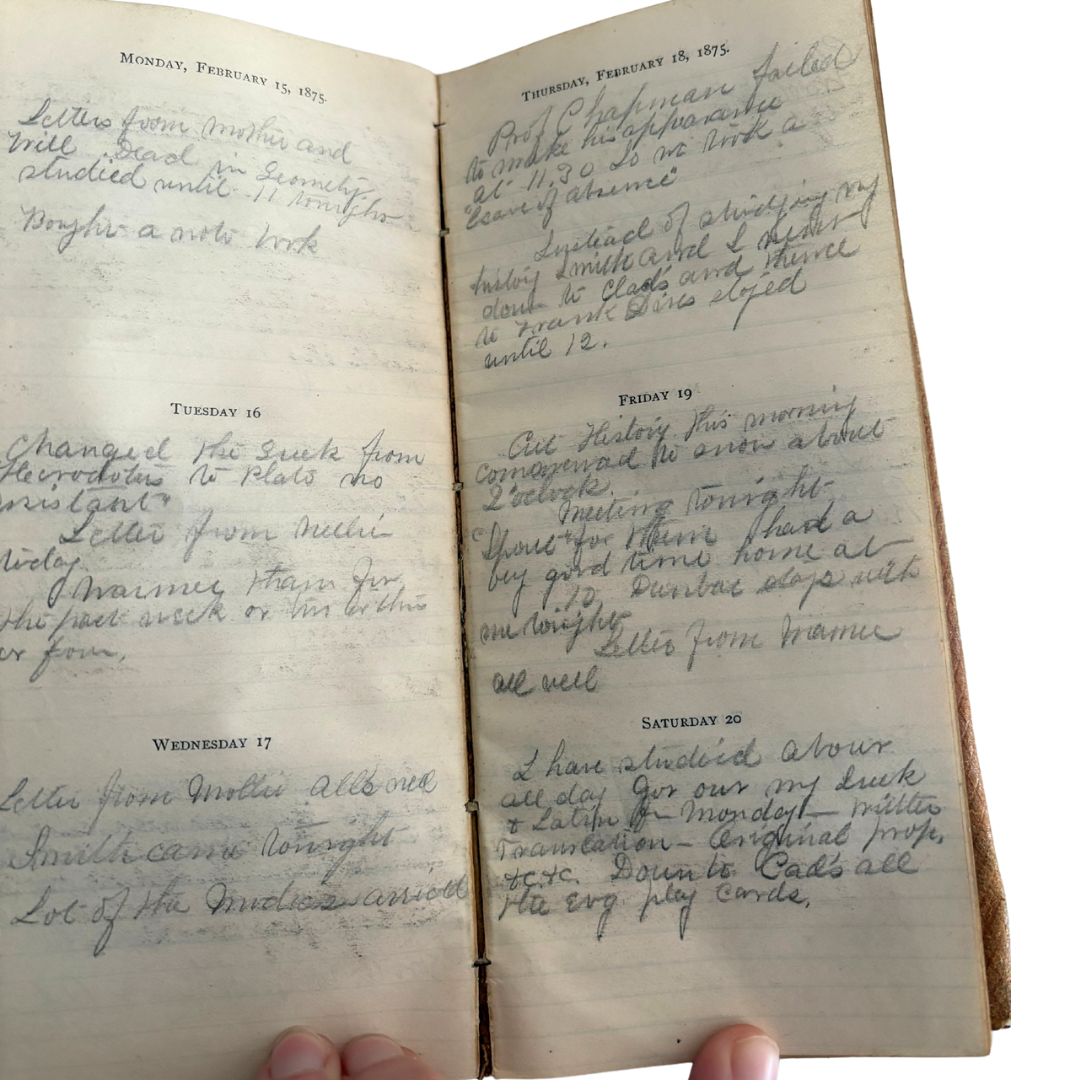 MONDAY, FEBRUARY 15, 1875.
Letters from mother and
Will Dead in Geometry
studied until 11 tonight
Bought a note book
TUESDAY 16
Changed the Greek from
Herodotus to Plato no
assistant"
Letter from Nellie
today
Warmer than for
the past week or
or four.
WEDNESDAY 17
Letter from Mollie All's well
Smith came tonight
Lot of the Medics arrived
THURSDAY, FEBRUARY 18, 1875.
Prof Chapman failed
to make his appearance
at 11.30 So we took a
"leave of absence"
Instead of studying my
history Smith and I went
down to Cad's and thence
to Frank stayed
until 12.
FRIDAY 19
Cut History this morning
commenced to snow about
2 o'clock.
Meeting tonight
for them had a
good time home at
10 Dunbar stays with
me tonight
Letter from Mamee
all well
SATURDAY 20
I have studied about
all day Got out my Greek
& Latin for Monday — written
Translation — Original prop.
&c. &c. Down to Cad's all
the Evg play cards.